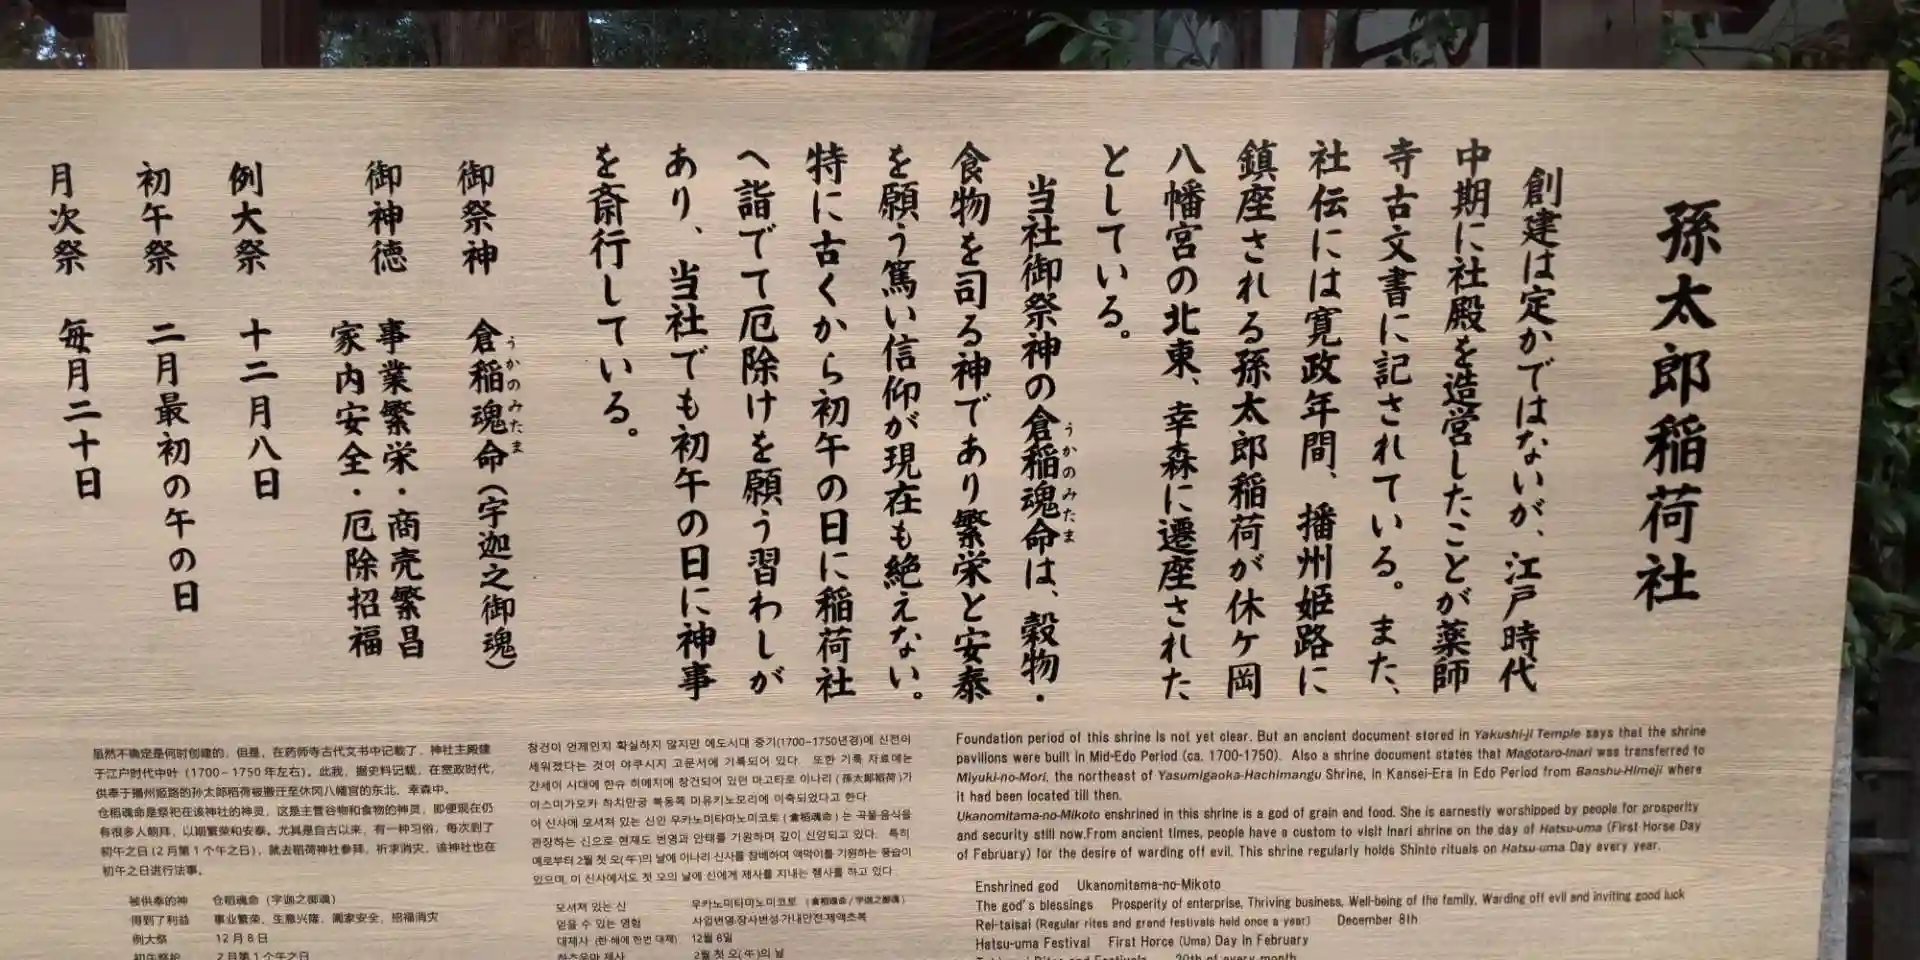 孫太郎稲荷社
創建は定かではないが、江戸時代
中期に社殿を造営したことが薬師
寺古文書に記されている。また、
社伝には寛政年間、播州姫路に
鎮座される孫太郎稲荷が休ヶ岡
八幡宮の北東、幸森に遷座された
としている。
当社御祭神の倉稲魂命は、穀物・
うかのみたま
食物を司る神であり繁栄と安泰
を願う篤い信仰が現在も絶えない。
特に古くから初午の日に稲荷社
へ詣でて厄除けを願う習わしが
あり、当社でも初午の日に神事
を斎行している。
御祭神 倉稲魂命(宇迦之御魂)
うかのみたま
御神徳 事業繁栄・商売繁昌
家内安全・厄除招福
例大祭 十二月八日
初午祭 二月最初の午の日
月次祭 毎月二十日
虽然不确定是何时创建的，但是，在药师寺古代文书中记载了，神社主殿建
于江户时代中叶（1700~1750年左右）。此我，据史料记载，在宽政时代，
供奉于播州姬路的孙太郎稻荷被搬迁至休冈八幡宫的东北，幸森中。
仓稻魂命是祭祀在该神社的神灵，这是主管谷物和食物的神灵，即便现在仍
有很多人朝拜，以期繁荣和安泰。尤其是自古以来，有一种习俗，每次到了
初午之日(2月第1个午之日)，就去稻荷神社参拜，祈求消灾，该神社也在
初午之日进行法事。
被供奉的神 仓稻魂命（宇迦之御魂）
得到了利益 事业繁荣，生意兴隆，阖家安全，招福消灾
例大祭 12月8日
初午祭祀 2月第1个午之日
창건이 언제인지 확실하지 않지만 에도시대 중기(1700-1750년경)에 신전이
세워졌다는 것이 야쿠시지 고문서에 기록되어 있다. 또한 기록 자료에는
간세이 시대에 한슈 히메지에 창건되어 있던 마고타로 이나리 (孫太郎稲荷)가
야스미가오카 하치만궁 북동쪽 미유키노모리에 이축되었다고 한다.
이 신사에 모셔져 있는 신인 우카노미타마노미코토 (倉稲魂命) 는 곡물·음식을
관장하는 신으로 현재도 번영과 안태를 기원하며 깊이 신앙되고 있다. 특히
예로부터 2월 첫 오(午)의 날에 이나리 신사를 참배하여 액막이를 기원하는 풍습이
있으며, 이 신사에서도 첫 오의 날에 신에게 제사를 지내는 행사를 하고 있다
모셔져 있는 신 우카노미타마노미코토 (倉稲魂命 / 宇迦之御魂)
얻을 수 있는 영험 사업번영·장사번성·가내안전·제액초복
대제사 (한 해에 한번 대제) 12월 8일
하츠우마 제사 2월 첫 오(午)의 날
Foundation period of this shrine is not yet clear. But an ancient document stored in Yakushi-ji Temple says that the shrine
pavilions were built in Mid-Edo Period (ca. 1700-1750). Also a shrine document states that Magotaro-Inari was transferred to
Miyuki-no-Mori, the northeast of Yasumigaoka-Hachimangu Shrine, in Kansei-Era in Edo Period from Banshu-Himeji where
it had been located till then.
Ukanomitama-no-Mikoto enshrined in this shrine is a god of grain and food. She is earnestly worshipped by people for prosperity
and security still now.From ancient times, people have a custom to visit Inari shrine on the day of Hatsu-uma (First Horse Day
of February) for the desire of warding off evil. This shrine regularly holds Shinto rituals on Hatsu-uma Day every year.
Enshrined god Ukanomitama-no-Mikoto
The god's blessings Prosperity of enterprise, Thriving business, Well-being of the family, Warding off evil and inviting good luck
Rei-taisai (Regular rites and grand festivals held once a year) December 8th
Hatsu-uma Festival First Horce (Uma) Day in February
20th of every month